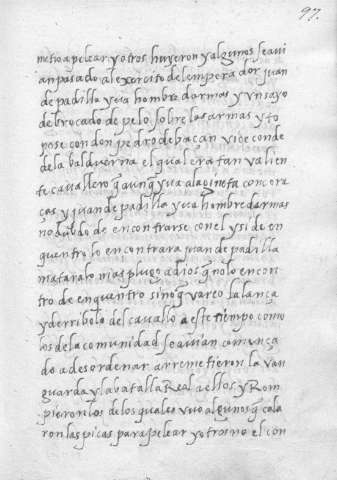 97.
metio a pelear y otros huyeron y algunos se avi
an pasado al exercito del emperador juan
de padilla yva hombre darmas y un sayo
de brocado de pelo sobre las armas y to
pose con don pedro de baçan viceconde
de la balduerna el qual era tan valien
te cavallero q aunq yva a la gineta con cora
ças y juan de padilla yva hombre darmas
no dubdo de encontrarse con el y si de en
quentro lo encontrara juan de padilla
matara lo mas plugo a dios q no lo encon
tro de enquentro sino q vareo la lança
y derribolo del cavallo a este tiempo como
los de la comunidad se avian comença
do a desordenar arremetieron la van
guarda y la batalla Real a ellos y Rom
pieron los de los quales uvo algunos q cala
ron las picas para pelear y otros no el con